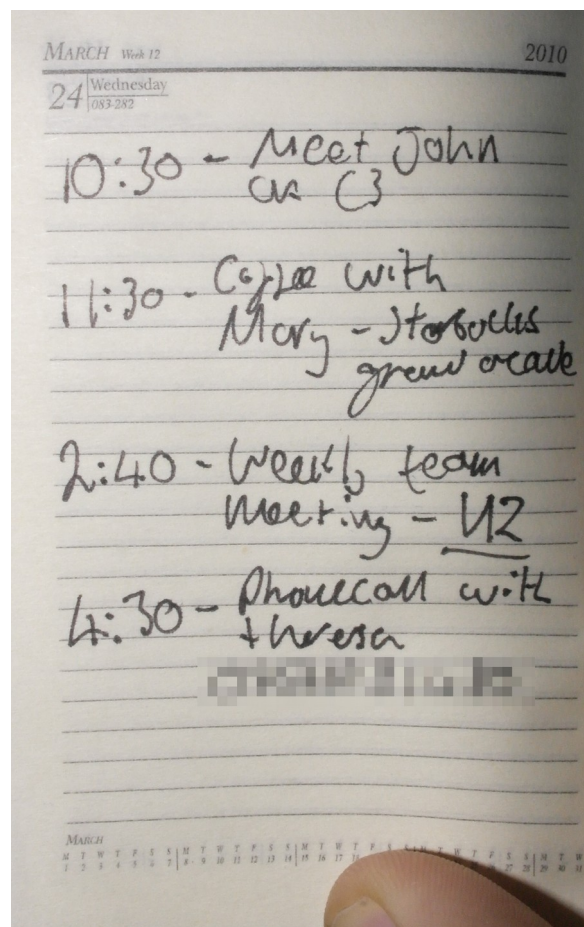 MARCH Week 12 2010
24 Wednesday
083-282
10:30 - Meet John
C3
11:30 - Coffee with
Mary - Starbucks
2:40 - Weekly team
meeting - U2
4:30 - Phonecall with
theresa
MARCH
M T W T F S S M T W T F S S M T W T F S S M T W T F S S M T W
1 2 3 4 5 6 7 8 9 10 11 12 13 14 15 16 17 18 28 29 30 31